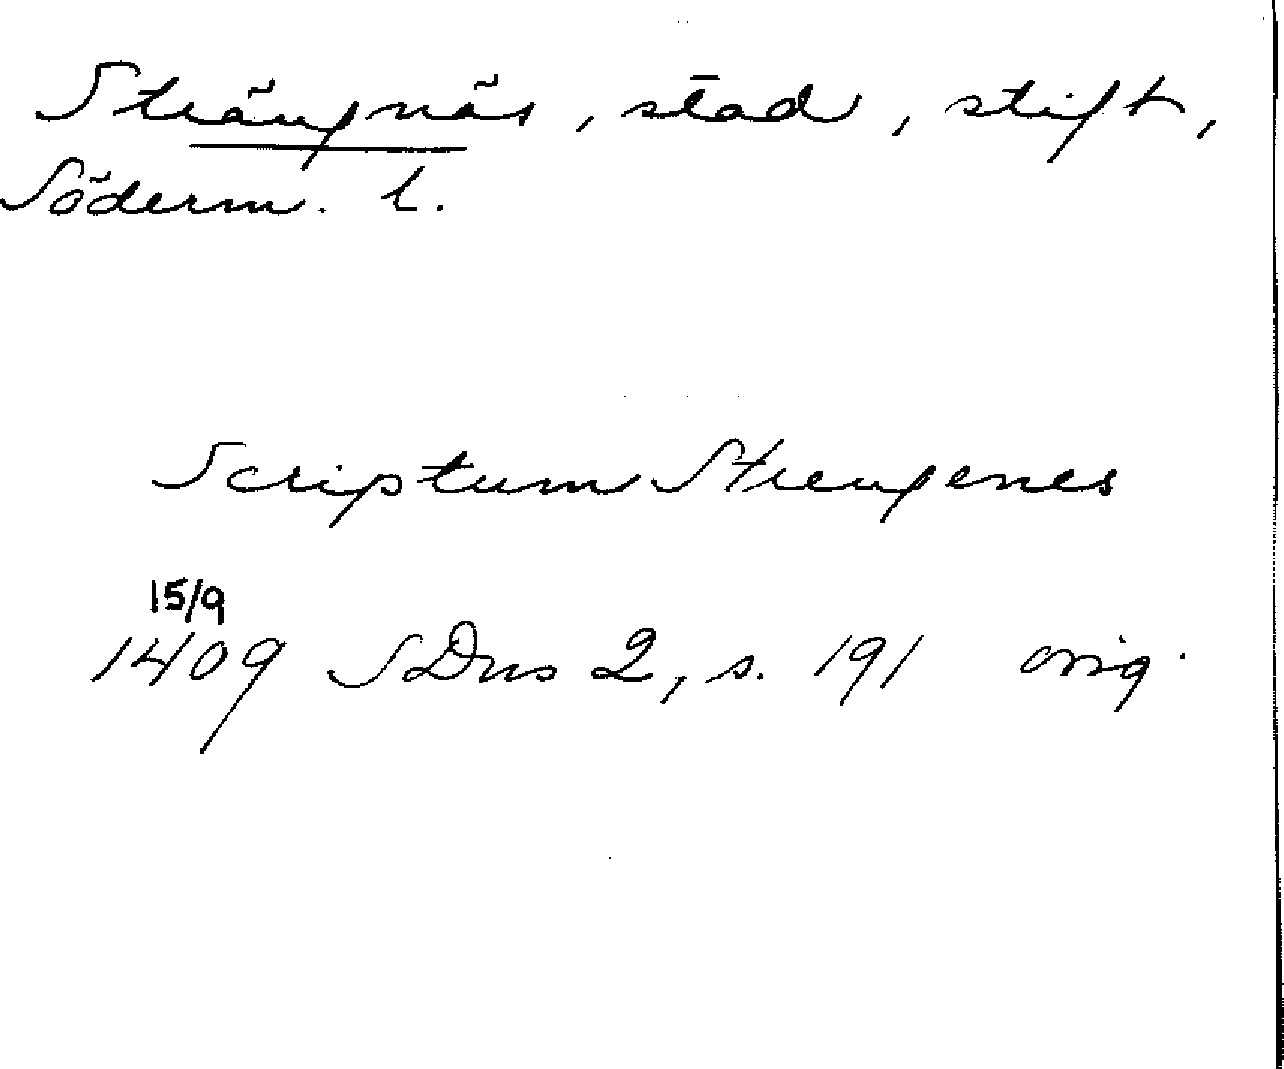 Strängnäs, stad, stift,
Söderm. l.
Scriptum Strengenes
15/9
1409 SDns 2, s. 191 orig.